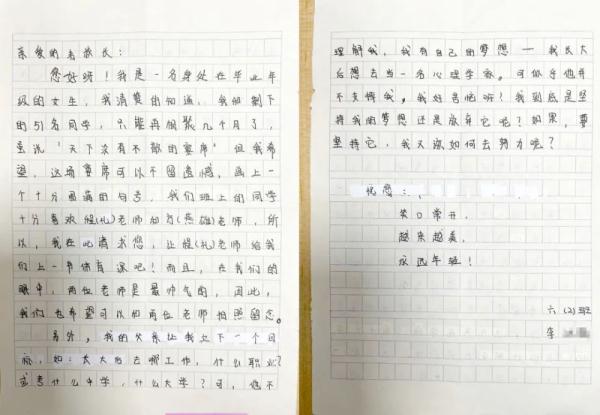 亲爱的李校长：
您好呀！我是一名身处在毕业年
级的女生，我清楚的知道，我们剩下
的51名同学，只能再相聚几个月了，
虽说“天下没有不散的宴席”但我希
望，这场宴席可以不留遗憾，画上一
个十分圆满的句号。我们班上的同学
十分喜欢 (礼)老师和肖(燕雄)老师，所
以，我在此请求您，让 (礼)老师给我
们上一节体育课吧！而且，在我们的
眼中，两位老师是最帅气的，因此，
我们也希望可以和两位老师拍照留念。
另外，我的父亲让我立下一个目
标，如：长大后去哪工作，什么职业？
或考什么中学，什么大学？可，他不
理解我，我有自己的梦想——我长大
后想去当一名心理学家。可似乎他并
不支持我。我好苦恼呀！我到底是坚
持我的梦想还是放弃它呢？如果，要
坚持它，我又该如何去努力呢？
祝您：
笑口常开，
越来越美，
永远年轻！
六(2)班
李